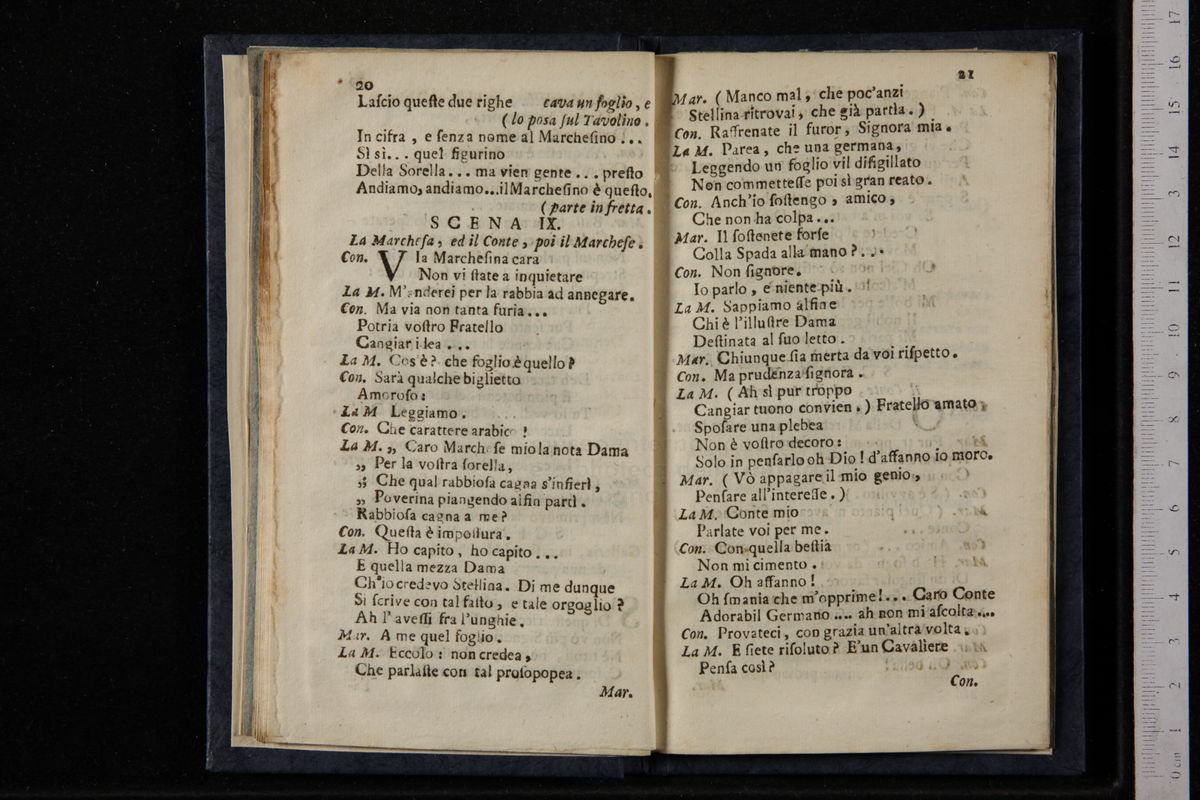 20
Laſcio queſte due righe cava un foglio, e
( lo poſa ſul Tavolino.
In cifra, e ſenza nome al Marcheſino ...
Sì sì... quel figurino
Della Sorella... ma vien gente... preſto
Andiamo, andiamo...il Marcheſino è queſto.
( parte in fretta.
SCENA IX.
La Marcheſa, ed il Conte, poi il Marcheſe.
Con. Via Marcheſina cara
Non vi ſtate a inquietare
La M. M'anderei per la rabbia ad annegare.
Con. Ma via non tanta furia...
Potria voſtro Fratello
Cangiar idea ...
La M. Cos'è? che foglio è quello?
Con. Sarà qualche biglietto
Amoroſo:
La M Leggiamo.
Con. Che carattere arabico !
La M. „ Caro Marcheſe mio la nota Dama
„ Per la voſtra ſorella,
„ Che qual rabbioſa cagna s'infierì,
„ Poverina piangendo alfin partì.
Rabbioſa cagna a me?
Con. Queſta è impoſtura.
La M. Ho capito, ho capito...
E quella mezza Dama
Ch'io credevo Stellina. Di me dunque
Si ſcrive con tal faſto, e tale orgoglio?
Ah l'aveſſi fra l'unghie.
Mar. A me quel foglio.
La M. Eccolo: non credea,
Che parlaſte con tal proſopopea.
Mar.
21
Mar. ( Manco mal, che poc'anzi
Stellina ritrovai, che già partìa.)
Con. Raffrenate il furor, Signora mia.
La M. Parea, che una germana,
Leggendo un foglio vil diſigillato
Non commetteſſe poi sì gran reato.
Con. Anch'io ſoſtengo, amico,
Che non ha colpa...
Mar. Il ſoſtenete forſe
Colla Spada alla mano?...
Con. Non ſignore.
Io parlo, e niente più.
La M. Sappiamo alfine
Chi è l'illuſtre Dama
Deſtinata al ſuo letto.
Mar. Chiunque ſia merta da voi riſpetto.
Con. Ma prudenza ſignora.
La M. ( Ah sì pur troppo
Cangiar tuono convien.) Fratello amato
Spoſare una plebea
Non è voſtro decoro:
Solo in penſarlo oh Dio! d'affanno io moro.
Mar. ( Vò appagare il mio genio,
Penſare all'intereſſe.)
La M. Conte mio
Parlate voi per me.
Con. Con quella beſtia
Non mi cimento.
La M. Oh affanno!
Oh ſmania che m'opprime!... Caro Conte
Adorabil Germano .... ah non mi aſcolta....
Con. Provateci, con grazia un'altra volta.
La M. E ſiete riſoluto? E'un Cavaliere
Penſa così?
Con.
0 cm 1 2 3 4 5 6 7 8 9 10 11 12 13 14 15 16 17